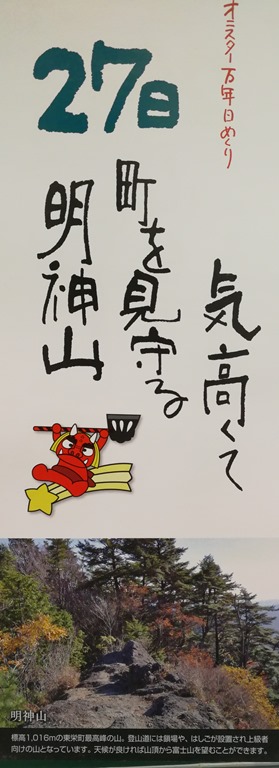 オニスター万年日めくり
27日
気高くて
町を見守る
明神山
明神山
標高1,016mの東栄町最高峰の山。登山道には鎖場や、はしごが設置され上級者
向けの山となっています。天候が良ければ山頂から富士山を望むことができます。